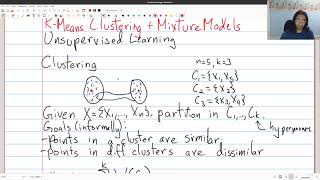 K-Means Clustering + Mixture Models
Unsupervised Learning
Clustering
n=5, k=3
C₁={x₁,x₅}
C₂={x₂}
C₃={x₃,x₄}
Given X={x₁,...,xₙ}, partition in C₁,..,Cₖ.
Goals (informally):
hyperparam
-points in a cluster are similar
-points in diff clusters are dissimilar
k